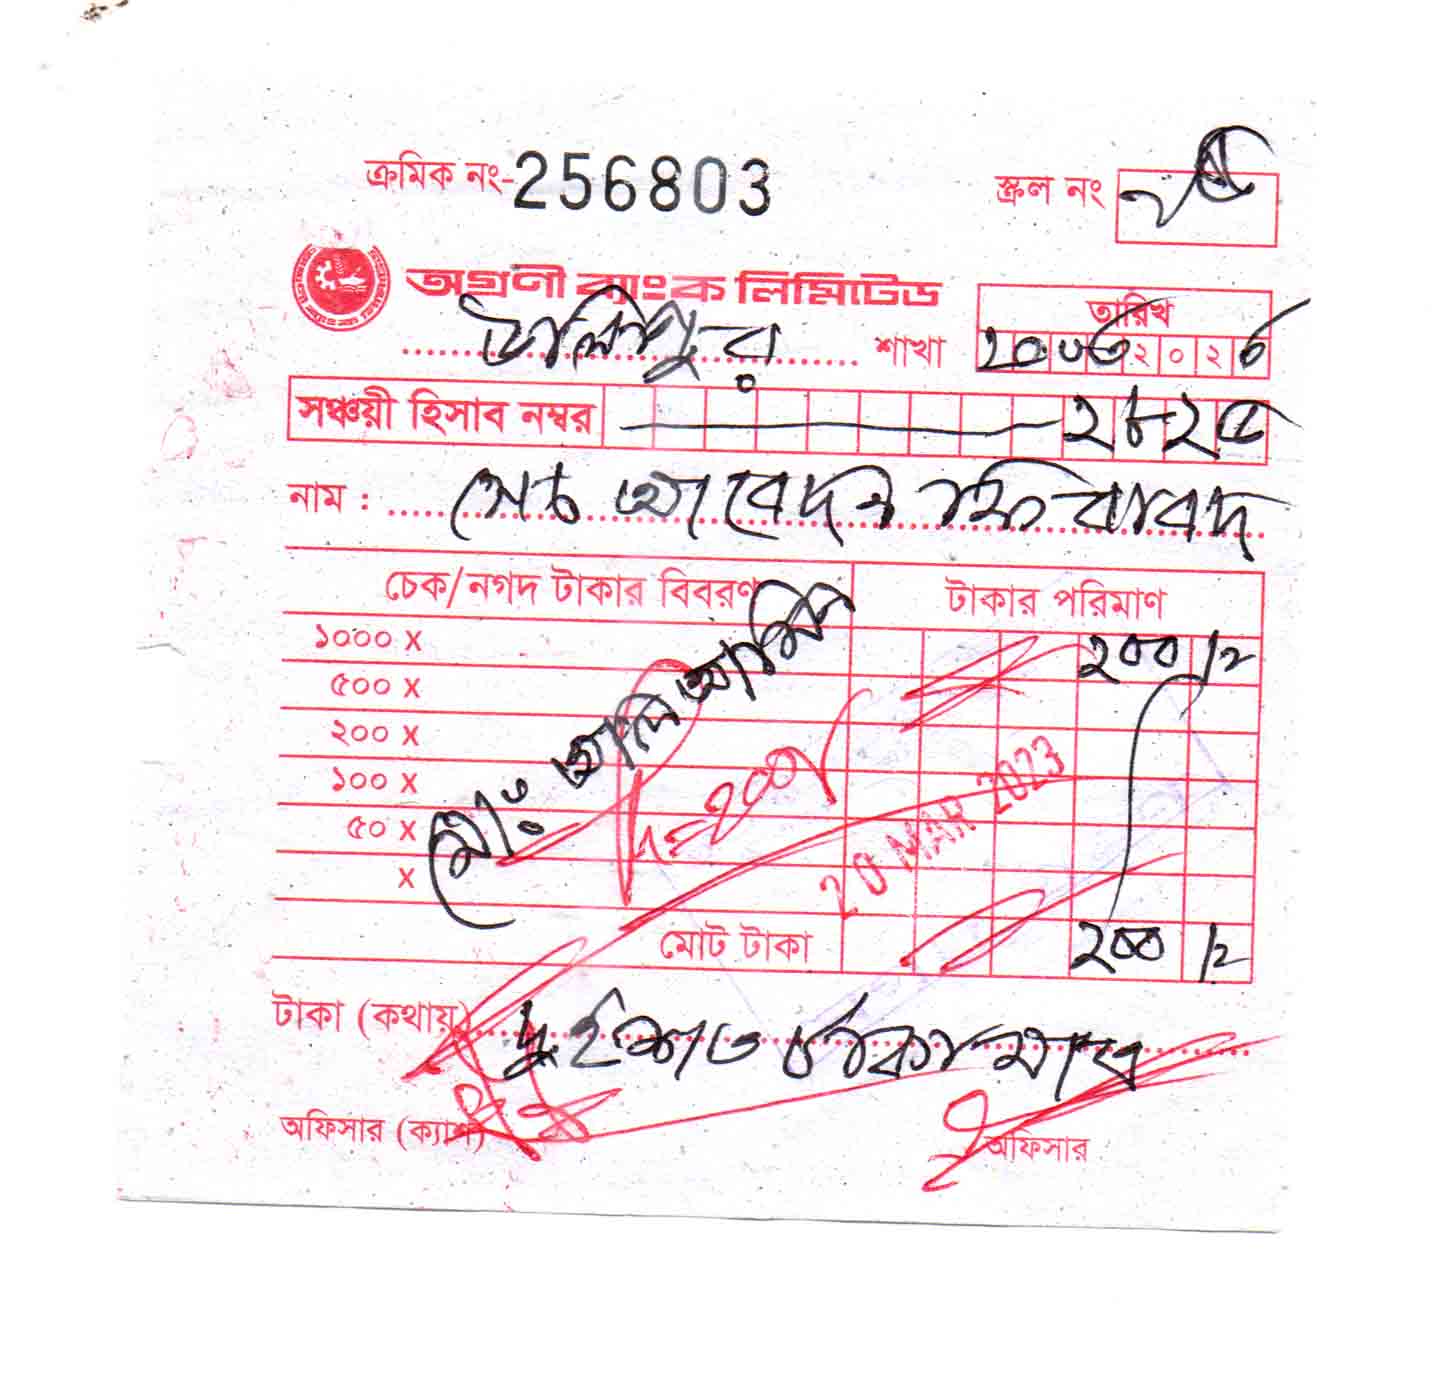 ক্রমিক নং-256803
স্ক্রল নং
অগ্রণী ব্যাংক লিমিটেড
তারিখ
উলিপুর শাখা
২০ ০৩ ২০২৩
সঞ্চয়ী হিসাব নম্বর ২৮২৫
নাম :
চেক/নগদ টাকার বিবরণ টাকার পরিমাণ
১০০০ x ২০০
৫০০ x
২০০ x
১০০ x
৫০ x
x
মোঃ আলি আমিন
=২০০/
20 MAR 2023
মোট টাকা ২০০
টাকা (কথায়) দুইশত টাকা মাত্র
অফিসার (ক্যাশ) অফিসার